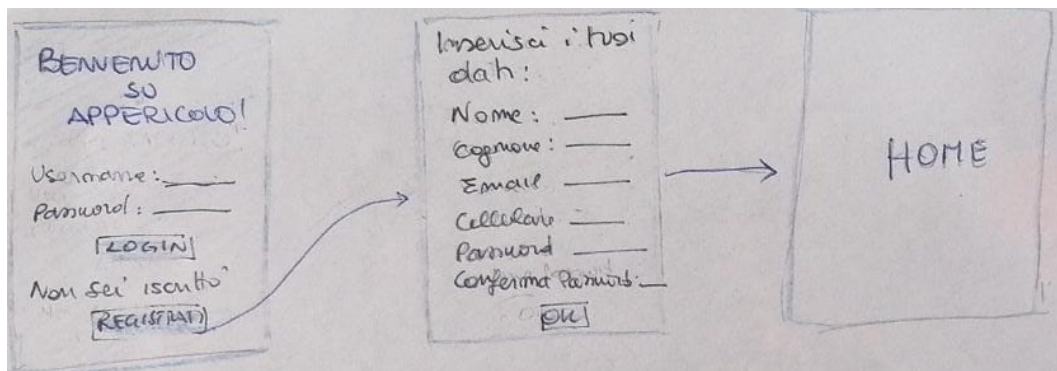 BENVENUTO
SU
APPERICOLO!
Username:
Password:
LOGIN
Non sei iscritto
REGISTRATI
Inserisci i tuoi
dati:
Nome:
Cognome:
Email
Cellulare
Password
Conferma Password:
OK
HOME